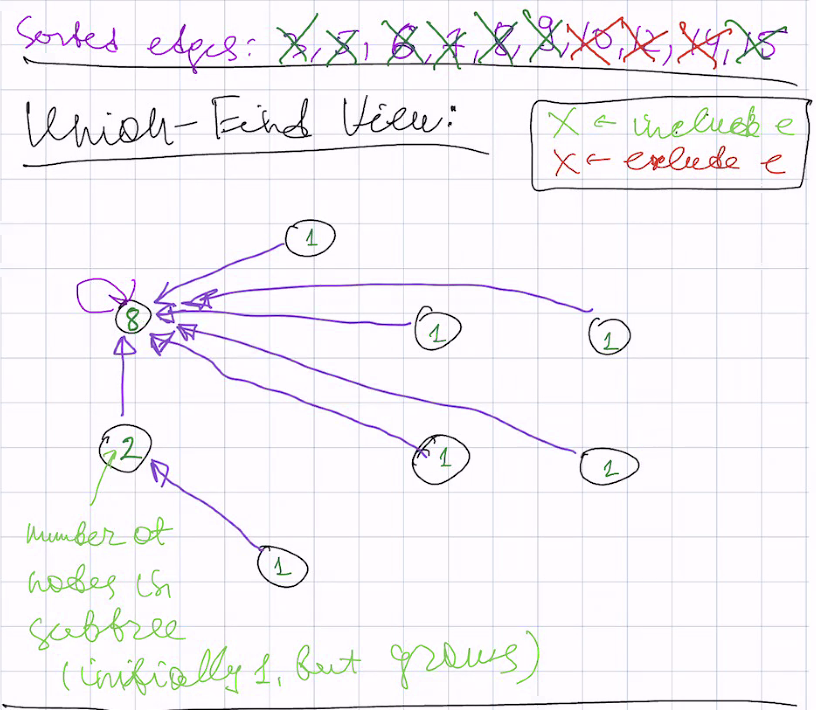 Sorted edges: 3, 5, 6, 7, 8, 9, 10, 12, 14, 15
Union-Find View:
X ← include e
X ← exclude e
1
8
1
1
2
1
1
1
number of
nodes in
subtree
(initially 1, but grows)